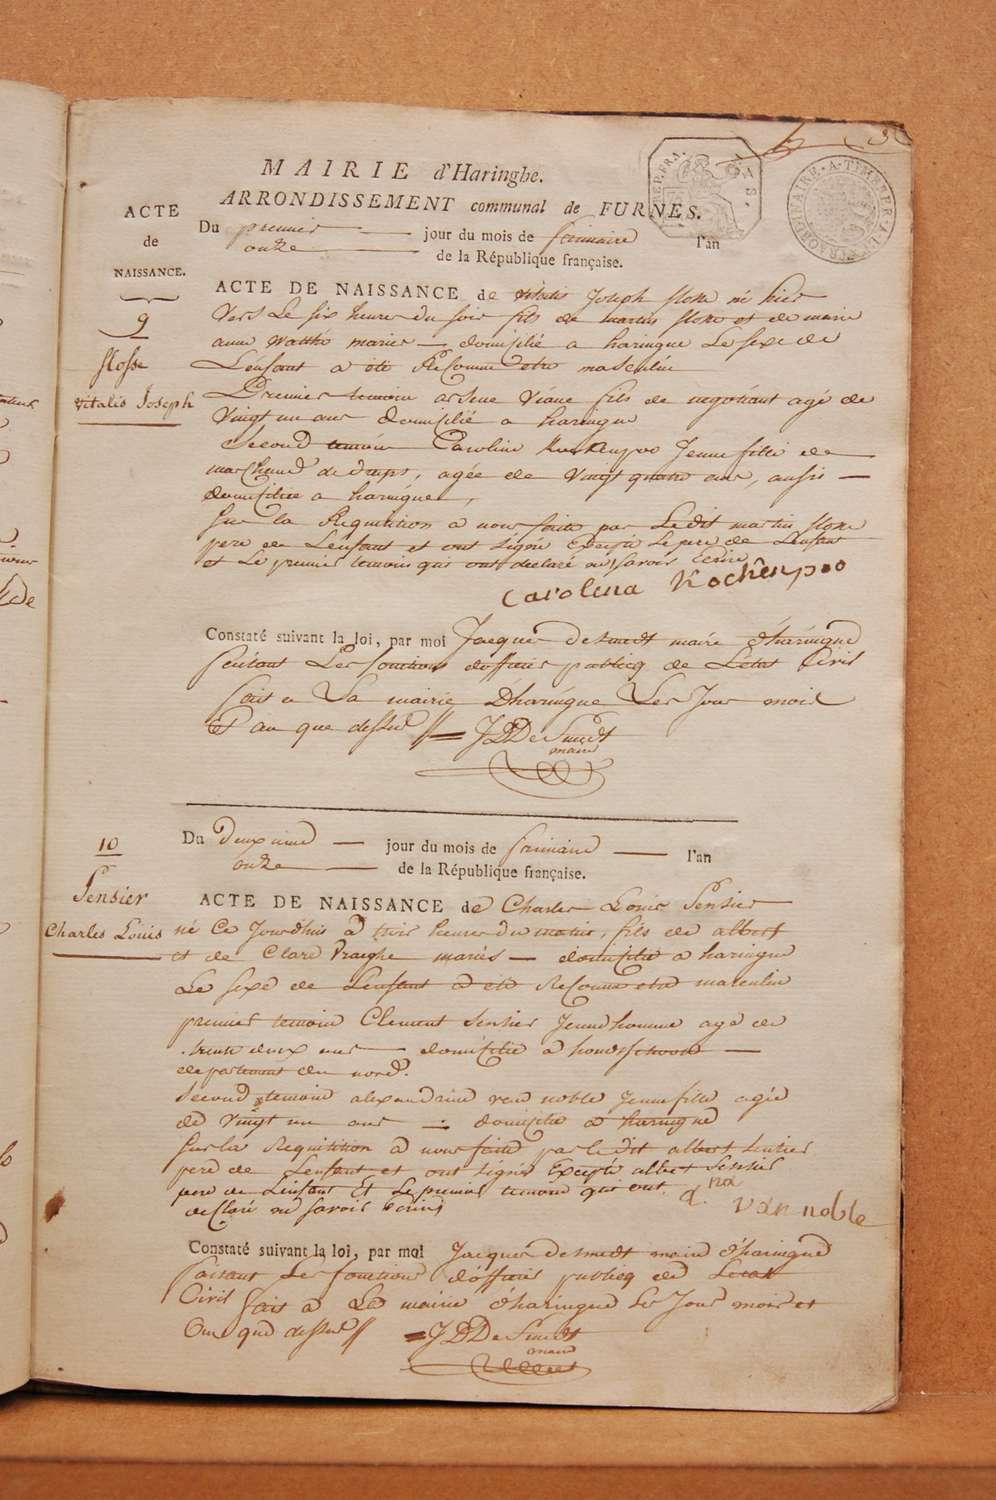 3
MAIRIE d'Haringhe.
ARRONDISSEMENT communal de FURNES.
ACTE
de
NAISSANCE.
Du premier jour du mois de frimaire l'an
onze de la République française.
9
flosse
Vitalis Joseph
ACTE DE NAISSANCE de vitalis Joseph flosse né hier
vers Le six heure du soir fils de martin flosse et de marie
anne mariés domicilié a haringue Le sexe de
L'enfant a été Reconnu etre masculin
Premier temoin arsene fils de negotiant agé de
Vingt un ans domicilié a haringue
Second temoin Caroline Kockenpoo Jeune fille de
marchand de draps, agée de Vingt quatre ans, aussi
domiciliée a haringue,
Sur la Requisition a nous faite par Ledit martin flosse
pere de L'enfant et ont signé Excepté Le pere de L'enfant
et Le premier temoin qui ont declaré ne savoir Ecrire
carolina Kockenpoo
Constaté suivant la loi, par moi Jacques desmedt maire d'haringue
faisant Les fonctions d'officier publicq de L'état Civil
fait a La mairie D'haringue Les Jour mois
Et an que dessus // J D DeSmedt
maire
10
Sensier
Charles Louis
Du Deuxieme jour du mois de frimaire l'an
onze de la République française.
ACTE DE NAISSANCE de Charles Louis Sensier
né Ce Jourdhui a trois heures du matin, fils de albert
et de Clare mariés domicilié a haringue
Le sexe de L'enfant a été Reconnu etre masculin
premier temoin Clement Sensier Jeune homme agé de
trente deux ans domicilié a hondschoote
departement du nord.
Second temoin alexandrine van noble Jeune fille agée
de Vingt un ans domicilié a haringue
Sur la Requisition a nous faite par le dit albert Sensier
pere de L'enfant et ont signés Excepté albert Sensier
pere de L'enfant Et Le premier temoin qui ont
declaré ne savoir Ecrire
van noble
Constaté suivant la loi, par moi Jacques desmedt maire d'haringue
faisant Les fonctions d'officier publicq de L'état
Civil fait a La mairie d'haringue Les Jour mois et
an que dessus // J D DeSmedt
maire